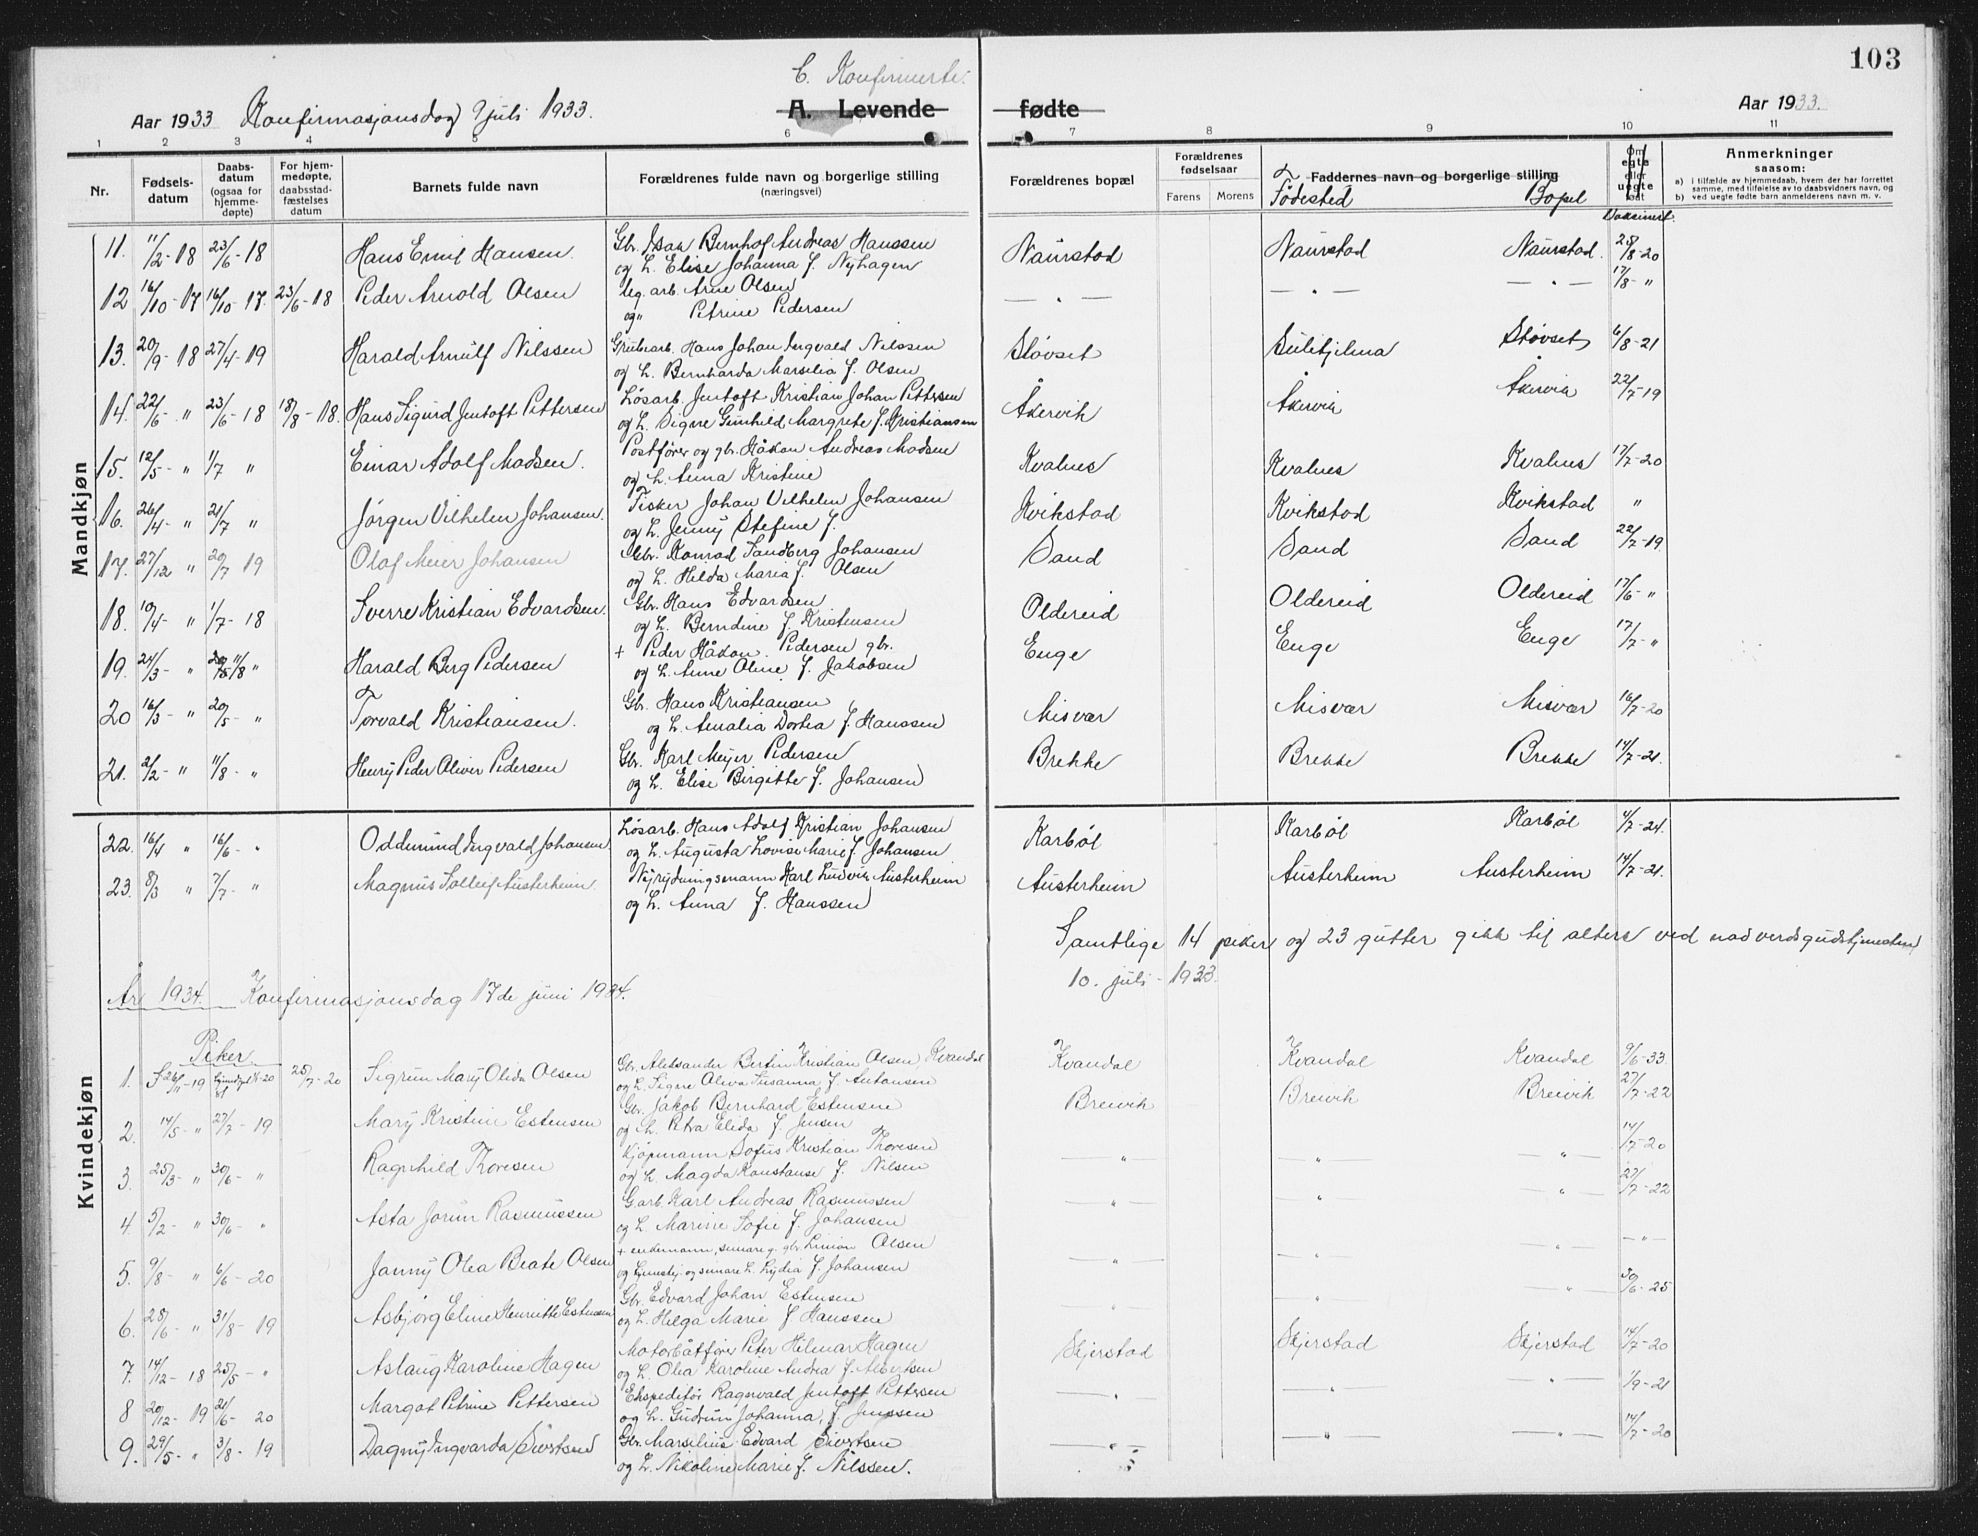 103
C. Konfirmerte.
Aar 1933 Konfirmasjonsdag 9 juli 1933.
A. Levende fødte
Aar 1933.
1 2 3 4 5 6 7 8 9 10 11
Nr.
Fødsels-datum
Daabs-datum (ogsaa for hjemme-døpte)
For hjem-medøpte, daabsstad-fæstelses datum
Barnets fulde navn
Forældrenes fulde navn og borgerlige stilling (næringsvei)
Forældrenes bopæl
Forældrenes fødselsaar
Farens Morens
Faddernes navn og borgerlige stilling
Fødested Bopel
Om egte eller uegte født
Vaksinert
Anmerkninger saasom:
a) i tilfælde av hjemmedaab, hvem der har forrettet samme, med tilføielse av to daabsvidners navn, og
b) ved uegte fødte barn anmelderens navn m. v.
Mandkjøn
11. 11/2-18 23/6-18 Hans Emil Hansen. Gbr. Isak Bernhof Andreas Hanssen Naurstad Naurstad Naurstad. 25/8-20
og h. Elise Johanna f. Nyhagen
12 16/10-17 16/10-17. 23/6-18 Peder Arnold Olsen leg. arb. Arne Olsen — " — — " — — " — 17/8- "
og " Petrine Pedersen
13. 20/9-18 27/4-19 Harald Arnulf Nilssen Grubearb. Hans Johan Ingvald Nilssen Støvset Sulitjelma Støvset 6/8-21
og h. Bernharda Marselia f. Olsen
14. 22/6- " 23/6-18 18/8-18. Hans Sigurd Jentoft Pettersen Løsarb. Jentoft Kristian Johan Pettersen Åkervik Åkervik Åkervik 22/7-19
og h. Signe Gunhild Margrete f. Kristiansen
15. 12/5- " 1/7 " Einar Adolf Madsen. Postfører og gbr. Håkon Andreas Madsen Kvalnes Kvalnes Kvalnes 17/7-20
og h. Anna Kristine
16. 26/4- " 21/7 " Jørgen Vilhelm Johansen. Fisker Johan Vilhelm Johansen Kvikstad Kvikstad Kvikstad "
og h. Jenny Stefine f.
17. 27/12 " 20/7 19 Olaf Meier Johansen Gbr. Konrad Sandberg Johansen Sand Sand Sand 22/7-19
og h. Helda Maria f. Olsen
18. 19/4- " 1/7-18 Sverre Kristian Edvardsen. Gbr. Hans Edvardsen Oldereid Oldereid Oldereid 17/6- "
og h. Berndine f. Kristensen
19. 24/3- " 11/8 " Harald Berg Pedersen + Peder Håkon Pedersen gbr. Enge Enge Enge 17/7- "
og h. Anne Oline f. Jakobsen
20 16/3- " 20/5- " Torvald Kristiansen. Gbr. Hans Kristiansen Misvær Misvær Misvær 16/7-20
og h. Amalia Dortea f. Hanssen
21. 2/2- " 11/8- " Henry Peder Oliver Pedersen Gbr. Karl Meyer Pedersen Brekke Brekke Brekke 14/7-21.
og h. Elise Birgitte f. Johansen
22. 16/4 " 16/6- " Oddmund Ingvald Johansen Løsarb. Hans Adolf Kristian Johansen Karbøl Karbøl Karbøl 4/7-24.
og h. Augusta Lovise Marie f. Johansen
23. 8/3 " 7/7- " Magnus Solleif Austerheim. Nyrydningsmann Karl Ludvik Austerheim Austerheim Austerheim Austerheim 14/7-21.
og h. Anna f. Hanssen
Samtlige 14 piker og 23 gutter gikk til alters ved nadverdsgudstjenesten
10. juli - 1933.
År 1934. Konfirmasjonsdag 17de juni 1934.
Kvindekjøn
Piker
1. 26/11-19 25/7-20 Sigrun Mary Olida Olsen Gbr. Aleksander Bertin Kristian Olsen Kvandal Kvandal Kvandal Kvandal 9/6-33
og h. Signe Oliva Susanna f. Antonsen
2. 14/5- " 27/7-19 Mary Kristine Estensen Gbr. Jakob Bernhard Estensen Breivik Breivik Breivik 27/7-22
og h. Petra Elida f. Jensen
3. 25/3- " 30/6- " Ragnhild Thoresen Kjøpmann Sofus Kristian Thoresen — " — — " — — " — 14/7-20
og h. Magda Konstanse f. Nilsen
4. 5/2- " 30/6- " Asta Jorun Rasmussen G.arb. Karl Andreas Rasmussen — " — " — " — 27/7-22
og h. Marine Sofie f. Johansen
5. 9/8- " 6/6-20 Janny Olea Beate Olsen + enkemann, senere g. gbr. Simon Olsen — " — — " — — " — — " —
og tjenestej. og senere h. Lydia f. Johansen
6. 28/6- " 31/8-19 Asbjørg Eline Henriette Estensen Gbr. Edvard Johan Estensen " " — " — 30/6-25
og h. Helga Marie f. Hanssen
7. 14/12-18 25/5- " Aslaug Karoline Hagen Motorbåtfører Peter Hilmar Hagen Skjerstad Skjerstad Skjerstad 14/7-20
og h. Olea Karoline Andrea f. Albertsen
8 20/12-19 21/6-20 Margot Petrine Pettersen Ekspeditør Ragnvald Jentoft Pettersen — " — — " — — " — 1/9-21
og h. Gudrun Johanna f. Jenssen
9. 29/5- " 3/8-19 Dagny Ingvarda Sivertsen Gbr. Marselius Edvard Sivertsen — " — — " — — " — 14/7-20
og h. Nikoline Marie f. Nilssen.